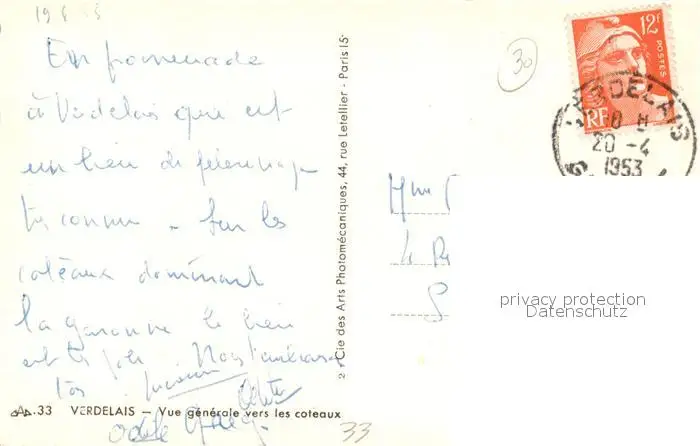 En promenade
à Verdelais qui est
un lieu de pelerinage
très connu - Sur les
coteaux dominant
la garonne le lieu
est très joli
AA.33 VERDELAIS – Vue générale vers les coteaux
Cie des Arts Photomécaniques, 44, rue Letellier - Paris 15e
30
12F
POSTES
RF
VERDELAIS
20 -4
1953
Mme
privacy protection
Datenschutz
33